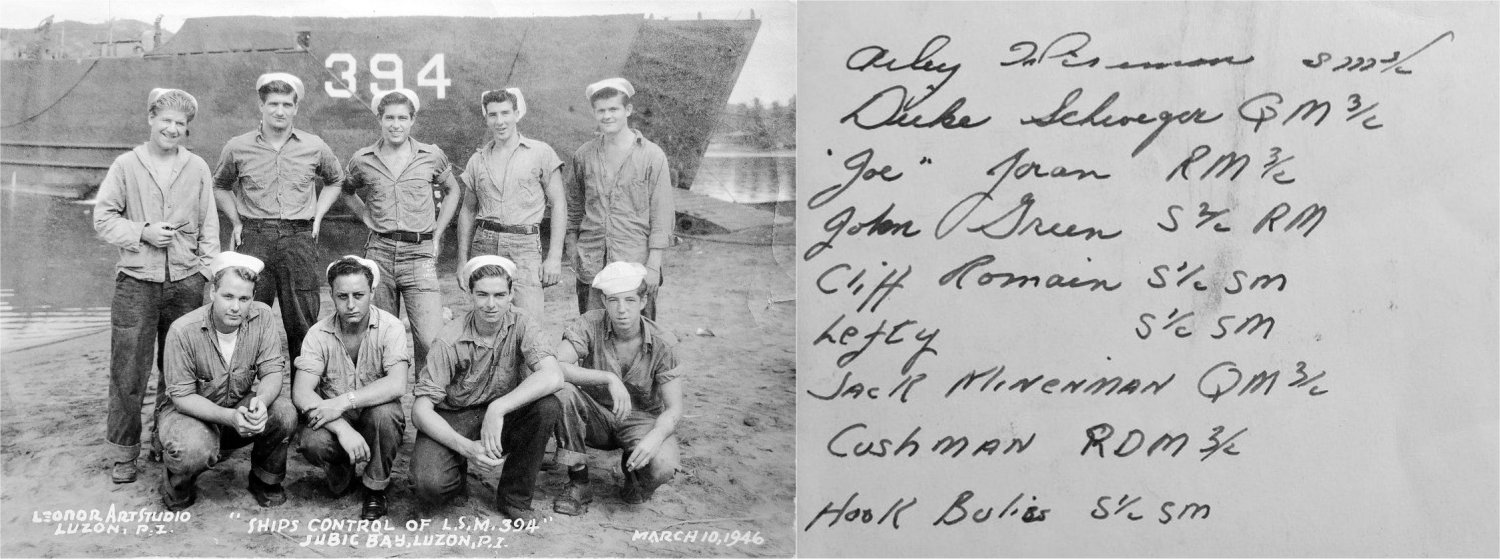 394
LEONOR ART STUDIO
LUZON, P.I.
"SHIPS CONTROL OF L.S.M. 394"
SUBIC BAY, LUZON, P.I.
MARCH 10, 1946
Arley Wiseman SM 3/c
Duke Schwoger QM 3/c
"Joe" Joran RM 3/c
John Green S 2/c RM
Cliff Romain S 1/c SM
Lefty S 1/c SM
JACK MINENMAN QM 3/c
CUSHMAN RDM 3/c
HOOK Buliss S 1/c SM